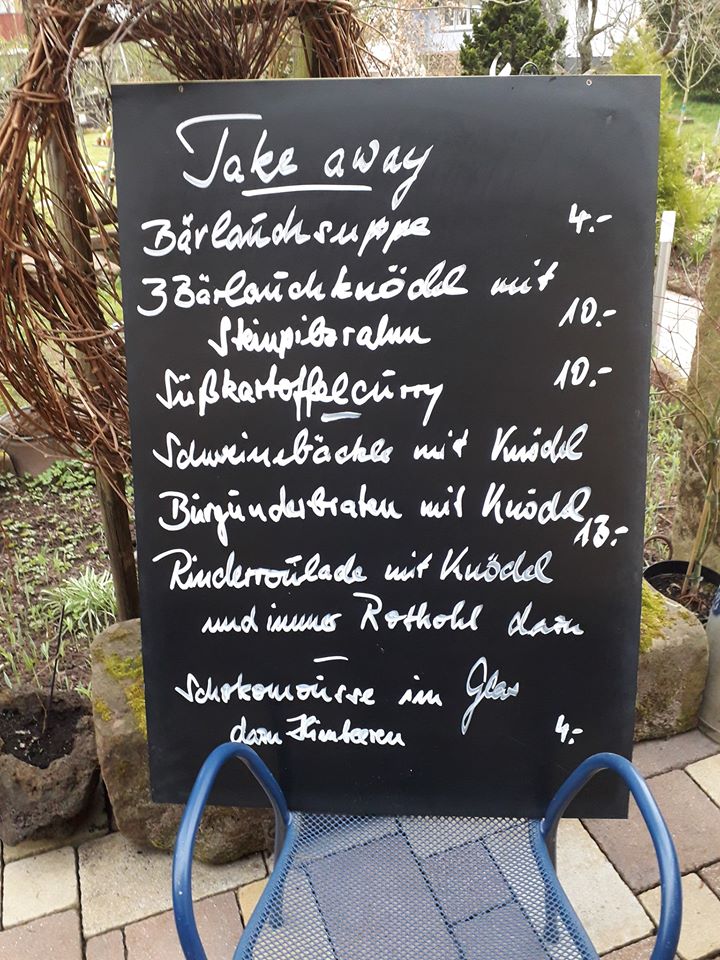 Take away
Bärlauchsuppe 4.-
3 Bärlauchknödel mit
Steinpilzrahm 10.-
Süßkartoffelcurry 10.-
Schweinebäckle mit Knödel
Burgunderbraten mit Knödel
13.-
Rinderroulade mit Knödel
und immer Rotkohl dazu
Schokomousse im Glas
dazu Himbeeren 4.-